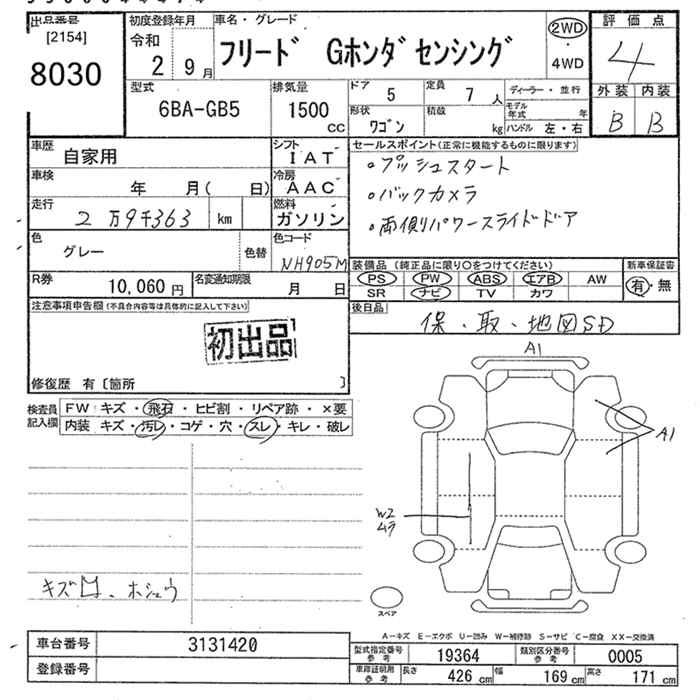 出品番号 [2154] 8030
初度登録年月 令和 2 9月
車名・グレード フリード Gホンダセンシング
2WD・4WD
評価点 4
外装 B 内装 B
型式 6BA-GB5
排気量 1500 CC
ドア 5
定員 7人
形状 ワゴン
積載 kg
ディーラー・並行
モデル年式 年
ハンドル 左・右
車歴 自家用
シフト IAT
車検 年 月( 日)
冷房 AAC
走行 2万9千363 km
燃料 ガソリン
色 グレー 色替
色コード NH905M
R券 10,060円
名変通知期限 月 日
セールスポイント(正常に機能するものに限ります)
・プッシュスタート
・バックカメラ
・両側パワースライドドア
装備品(純正品に限り○をつけてください)
PS PW ABS エアB AW
SR ナビ TV カワ
新車保証書 有・無
後日品 保・取・地図SD
注意事項申告欄(不具合内容等は具体的に記入して下さい)
初出品
修復歴 有〔箇所 〕
検査員記入欄
FW キズ・飛石・ヒビ割・リペア跡・×要
内装 キズ・汚レ・コゲ・穴・スレ・キレ・破レ
A1
A1
W2
ムラ
スペア
A-キズ E-エクボ U-凹み W-補修跡 S-サビ C-腐食 XX-交換済
車台番号 3131420
登録番号
型式指定番号 参考 19364
類別区分番号 参考 0005
車庫証明用 参考 長さ 426cm 幅 169cm 高さ 171cm